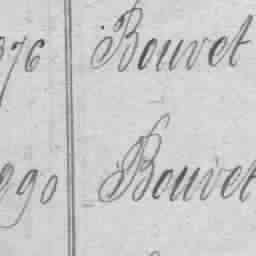 376 Bouvet
290 Bouvet